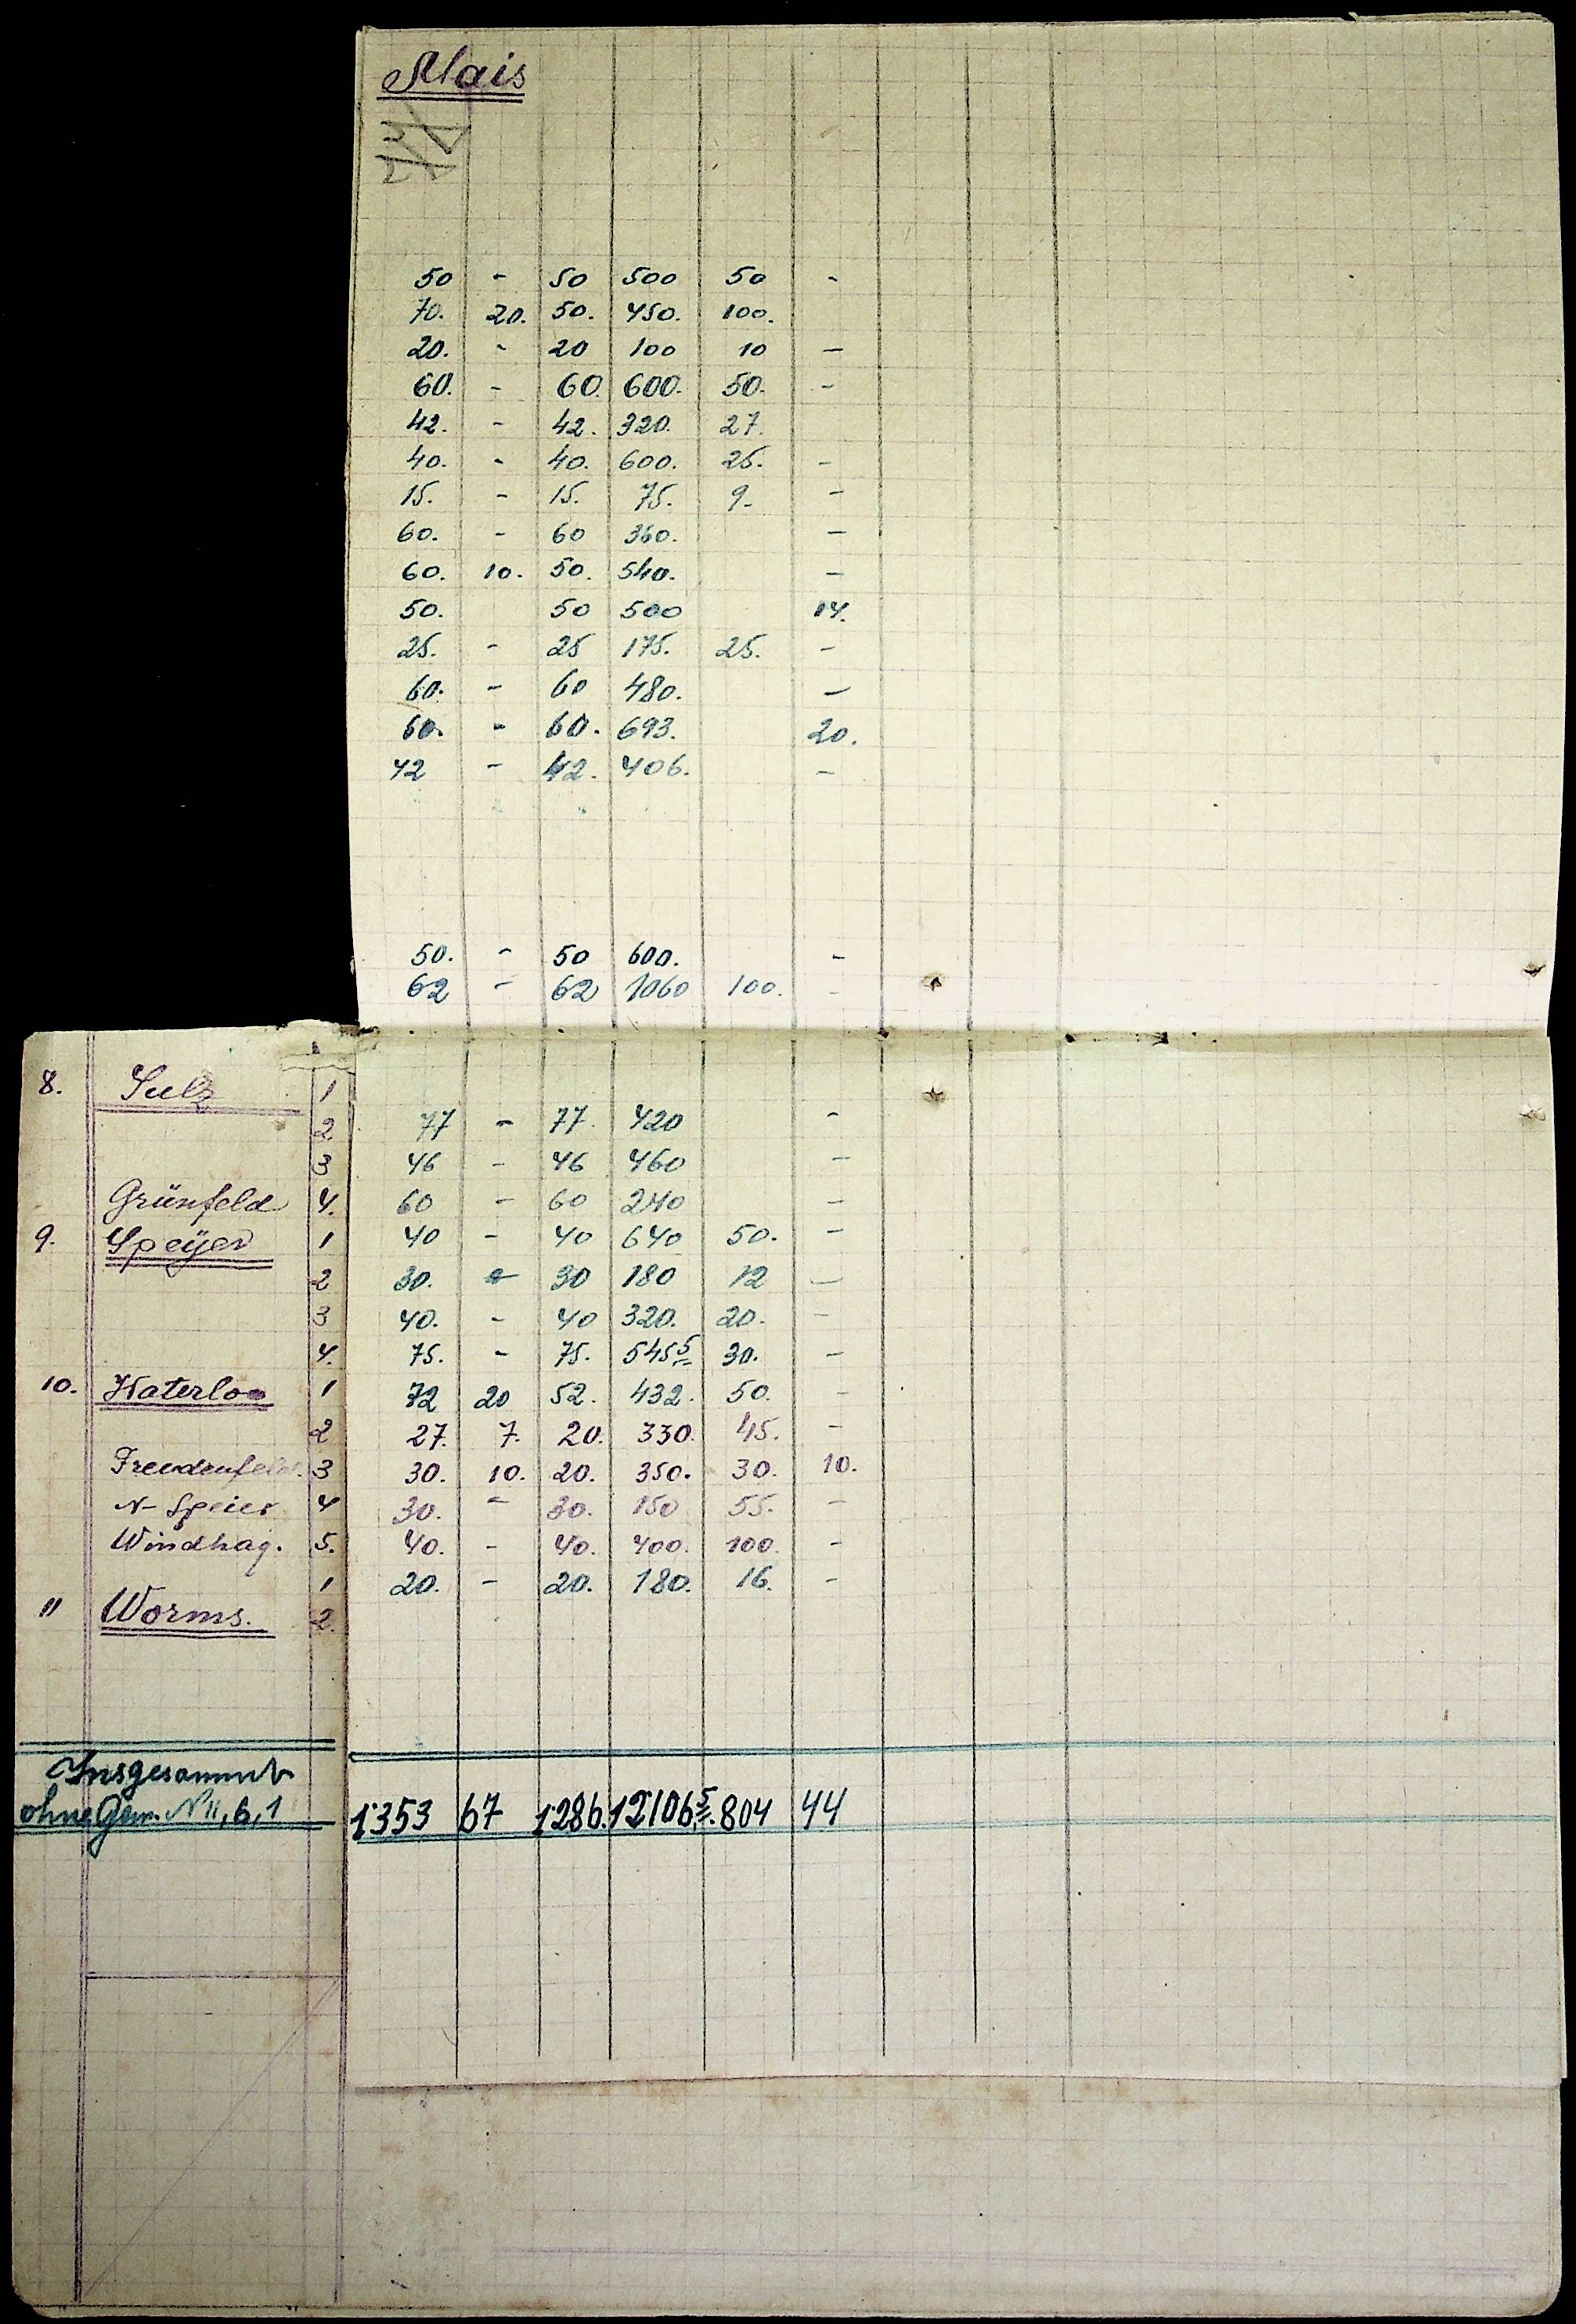 Mais
50 - 50 500 50 -
70. 20. 50. 450. 100.
20. - 20 100 10 -
60. - 60. 600. 50. -
42. - 42. 320. 27.
40. - 40. 600. 25. -
15. - 15. 75. 9. -
60. - 60 360. -
60. 10. 50. 540. -
50. 50 500 14.
25. - 25 175. 25. -
60. - 60 480. -
60. - 60. 693. 20.
42 - 42. 406. -
50. - 50 600. -
62 - 62 1060 100. -
8. Sulz 1
2 77 - 77. 420 -
3 46 - 46 460 -
Grünfeld 4. 60 - 60 240 -
9. Speÿer 1 40 - 40 640 50. -
2 30. - 30 180 12 -
3 40. - 40 320. 20. -
4. 75. - 75. 545,5 30. -
10. Waterloo 1 72 20 52. 432. 50. -
2 27. 7. 20. 330. 45. -
Freudenfeld. 3 30. 10. 20. 350. 30. 10.
N-Speier 4 30. - 30. 150 55. -
Windhag. 5. 40. - 40. 400. 100. -
1 20. - 20. 180. 16. -
11 Worms. 2.
Insgesammt
ohne Gem. N 11, 6, 1 1353 67 1286. 12106,5. 804 44